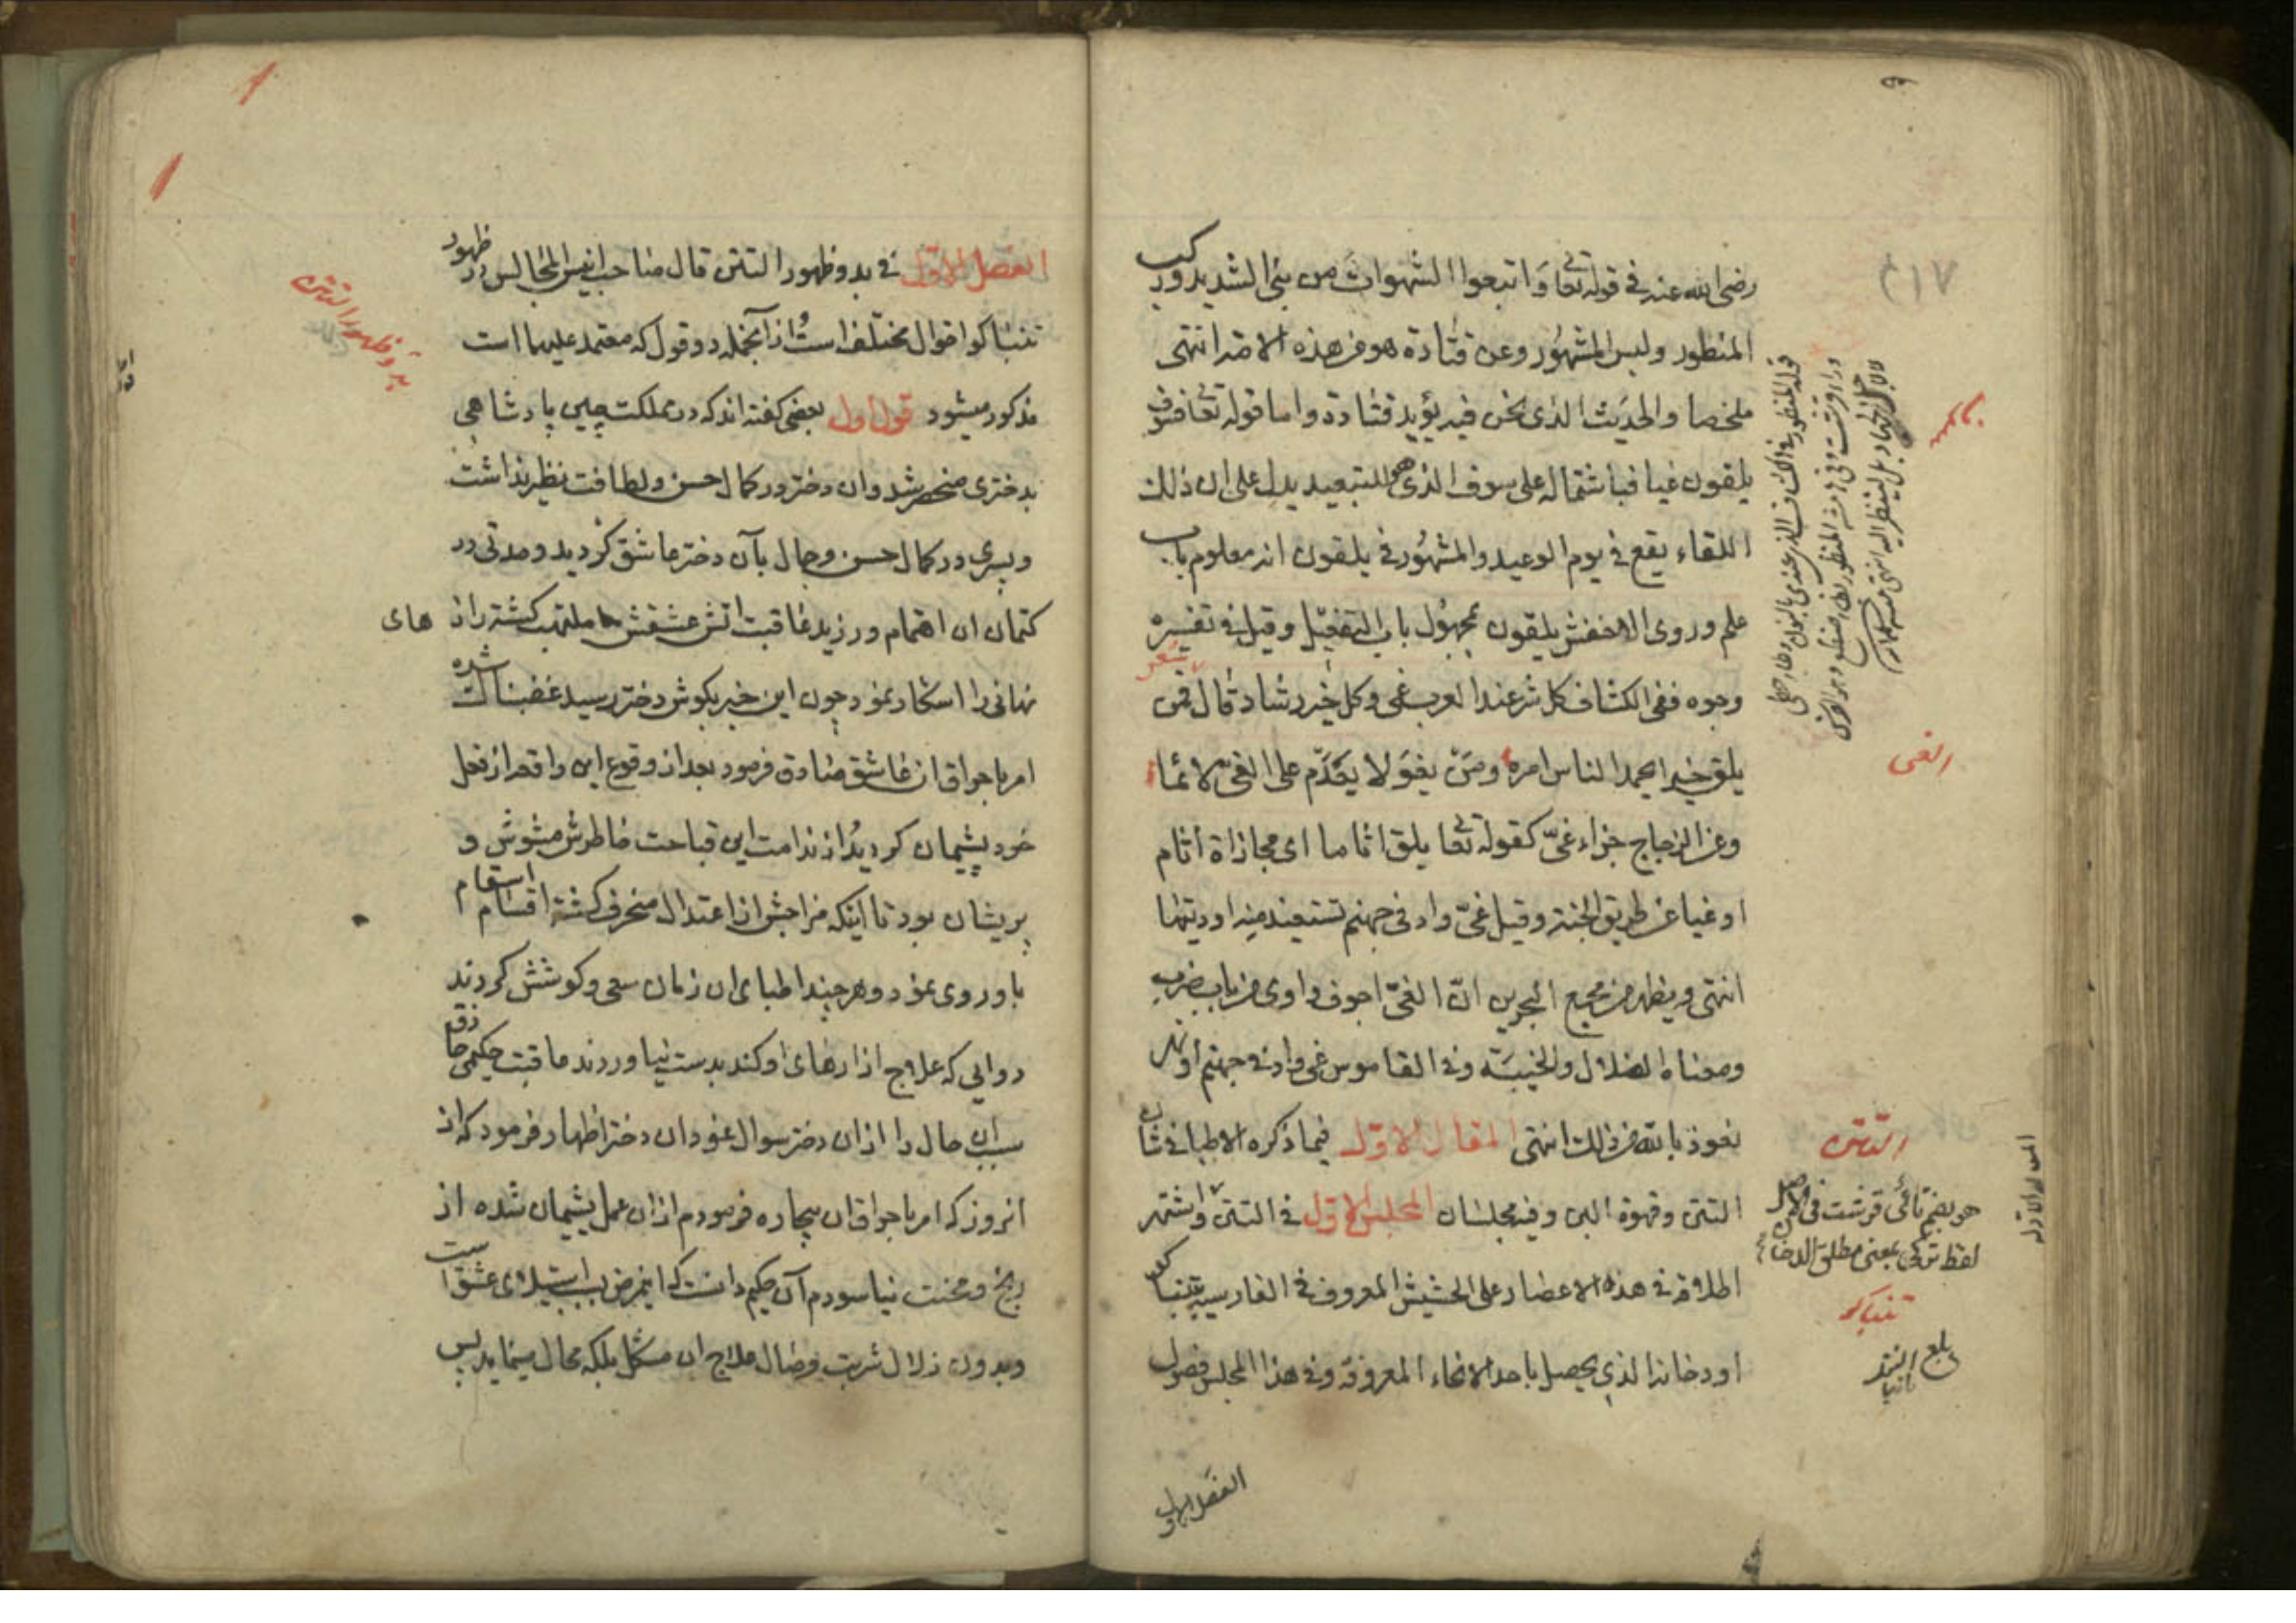 رضی الله عنه فی قوله تعا وَاتبعوا الشهوات من بنی الشدید ورکب
المنظور ولبس المشهُور وعن قتادة هو فی هذه الامة انتهی
ملخصا والحدیث الذی نحن فیه یؤید قتادة واما قوله تعا فسوف
یلقون غیا فباشتماله علی سوف الذی هو للتبعید یدل علی ان ذلک
اللقاء یقع فی یوم الوعید والمشهُور فی یلقون انه معلوم باب
علم وروی الاخفش یلقون مجهُول باب التفعیل وقیل فی تفسیره
وجوه ففی الکشاف کل شر عند العرب غی وکل خیر رشاد قال فمن
شعر
یلق خیرا یحمد الناس امره ومَنْ یغوَ لا یعدَم علی الغیّ لائما
وعن الزجاج جزاء غیّ کقوله تعا یلق اثاما ای مجازاة اثام
او غیا عن طریق الجنة وقیل غیّ واد فی جهنم تستعیذ منه اودیتها
انتهی ویظهر من مجمع البحرین انّ الغیّ اجوف واوی من باب ضرب
ومعناه الضلال والخیبَة وفی القاموس غی واد فی جهنم او نهر
نعوذ بالله من ذلک انتهی المقال الاوّل فیما ذکره الاطبا فی شان
التتن وقهوة البن وفیه مجلسان المجلس الاوّل فی التتن واشتهر
اطلاقه فی هذه الاعصار علی الحشیش المعروف فی الفارسیة بتنباکو
او دخانه الذی یحصل باحد الانحاء المعروفة وفی هذا المجلس فصول
الفصل الاول
الغی
التتن
هو بضم تائی قرشت فی الاصل
لفظ ترکی بمعنی مطلق الدخان
تنباکو
بلغ
الفصل الاوّل فی بدو ظهور التتن قال صاحب انیس المجالس در ظهور
تنباکو اقوال مختلف است از آنجمله دو قول که معتمد علیها است
مذکور میشود قول اول بعضی گفته اند که در مملکت چین پادشاهی
بدختری منحصر شد وان دختر در کمال حسن ولطافت نظیر نداشت
وپسری در کمال حسن وجمال بآن دختر عاشق گردید ومدتی در
کتمان ان اهتمام ورزید عاقبت اتش عشقش ملتهب گشته راز های
نهانی را اشکار نمود چون این خبر بگوش دختر رسید غضبناک شده
امر باحراق ان عاشق صادق فرمود بعد از وقوع این واقعه از فعل
خود پشیمان گردید از ندامت این قباحت خاطرش مشوش و
پریشان بود تا اینکه مزاجش از اعتدال منحرف گشته اقسام اسقام
باو روی نمود وهر چند اطبای ان زمان سعی وکوشش کردند
دوایی که علاج ازارهای او کند بدست نیاوردند عاقبت حکیمی حاذق
سبب ان حال را از ان دختر سوال نمود ان دختر اظهار فرمود که از
انروز که امر باحراق ان بیچاره فرمودم از ان عمل پشیمان شده از
رنج ومحنت نیاسودم آن حکیم دانست که اینمرض بسبب استیلای عشق است
وبدون زلال شربت وصال علاج ان مشکل بلکه محال مینماید پس
بدو ظهور التتن